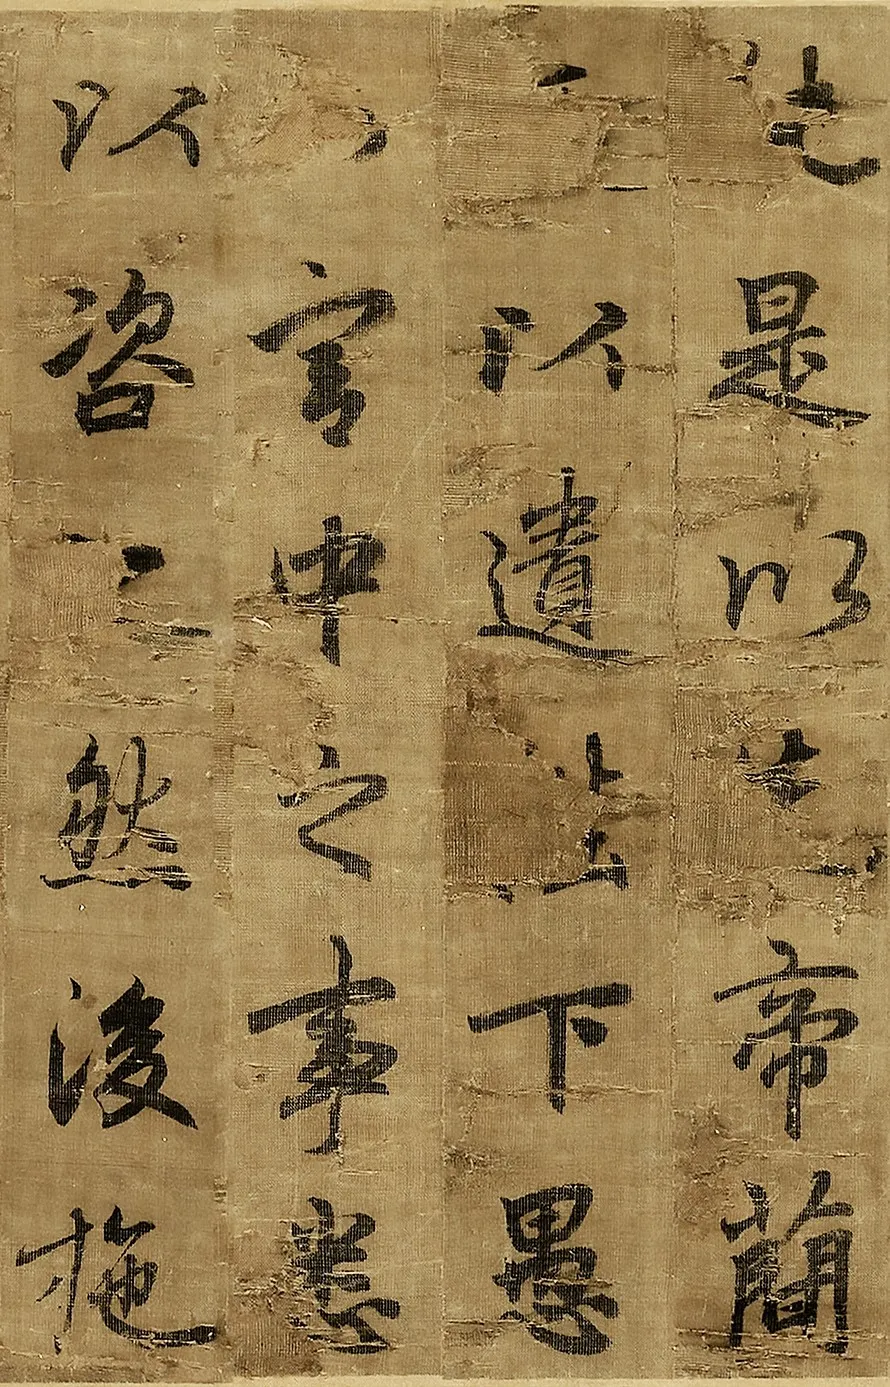 是以帝簡
以遺下愚
宮中之事悉
以咨然後施